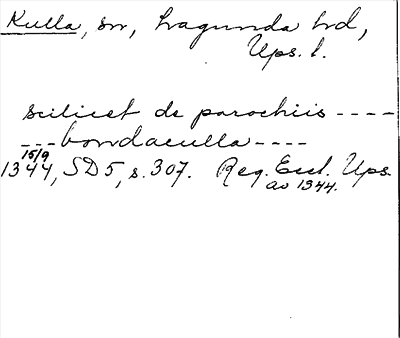 Kulla, sn, Lagunda hd,
Ups. l.
scilicet de parochiis ----
---bondaculla----
15/9
1344, SD5, s. 307. Reg. Eccl. Ups.
av 1344.